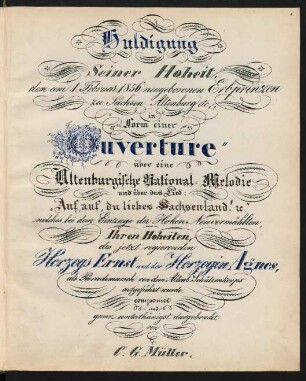 Huldigung
Seiner Hoheit,
dem am 1 Februar 1856 neugeborenen Erbprinzen
zu Sachsen Altenburg &c,
in
Form einer
Ouverture"
über eine
Altenburgische National-Melodie
und über das Lied
„Auf, auf, du liebes Sachsenland!" &c
welches bei dem Einzuge der Hohen Neuvermählten
Ihren Hoheiten,
des jetzt regierenden
Herzogs Ernst und der Herzogin Agnes,
als vor dem
aufgeführt wurde
componirt
und
ganz unterthänigst dargebracht
von
C. G. Müller.